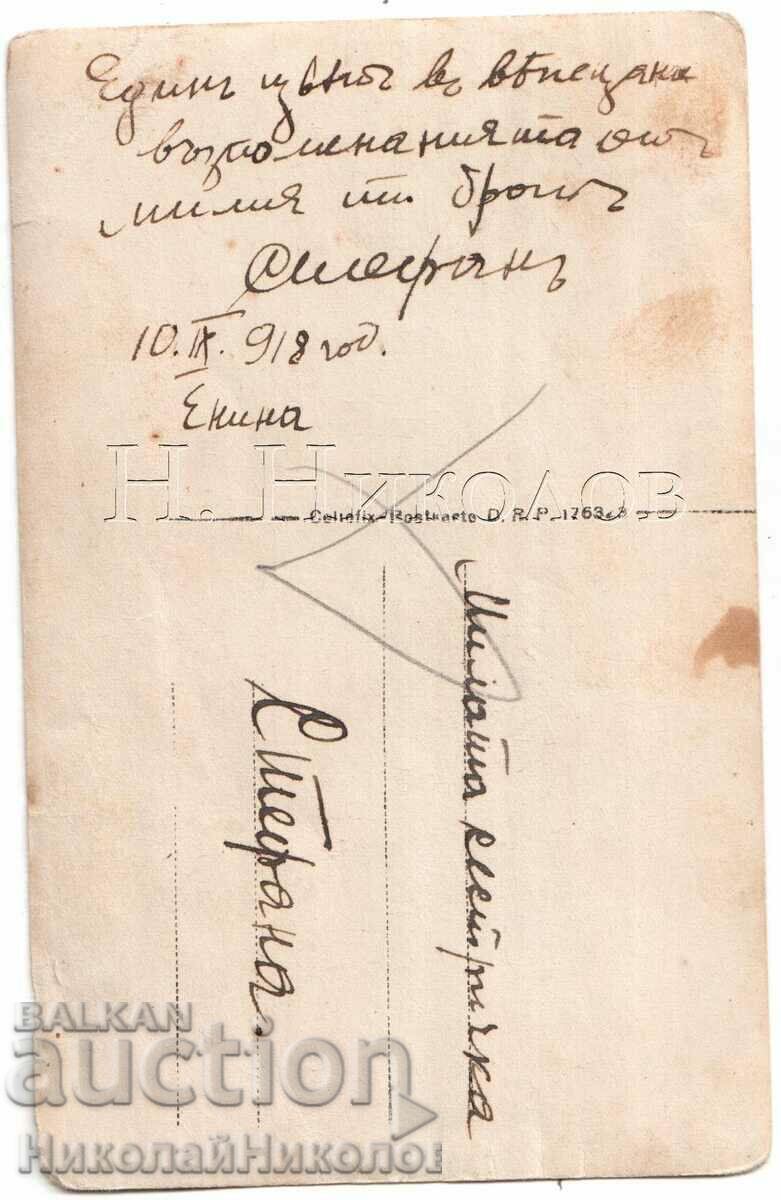 Единъ цвѣтъ въ вѣнеца на
възпоменанията отъ
милия ти братъ
Стефанъ
10.IX.918 год.
Енина
Н. Николов
Cellofix-Postkarte D. R. P. 1763.3
Милата сестричка
Стефана.
BALKAN
auction
НиколайНиколов